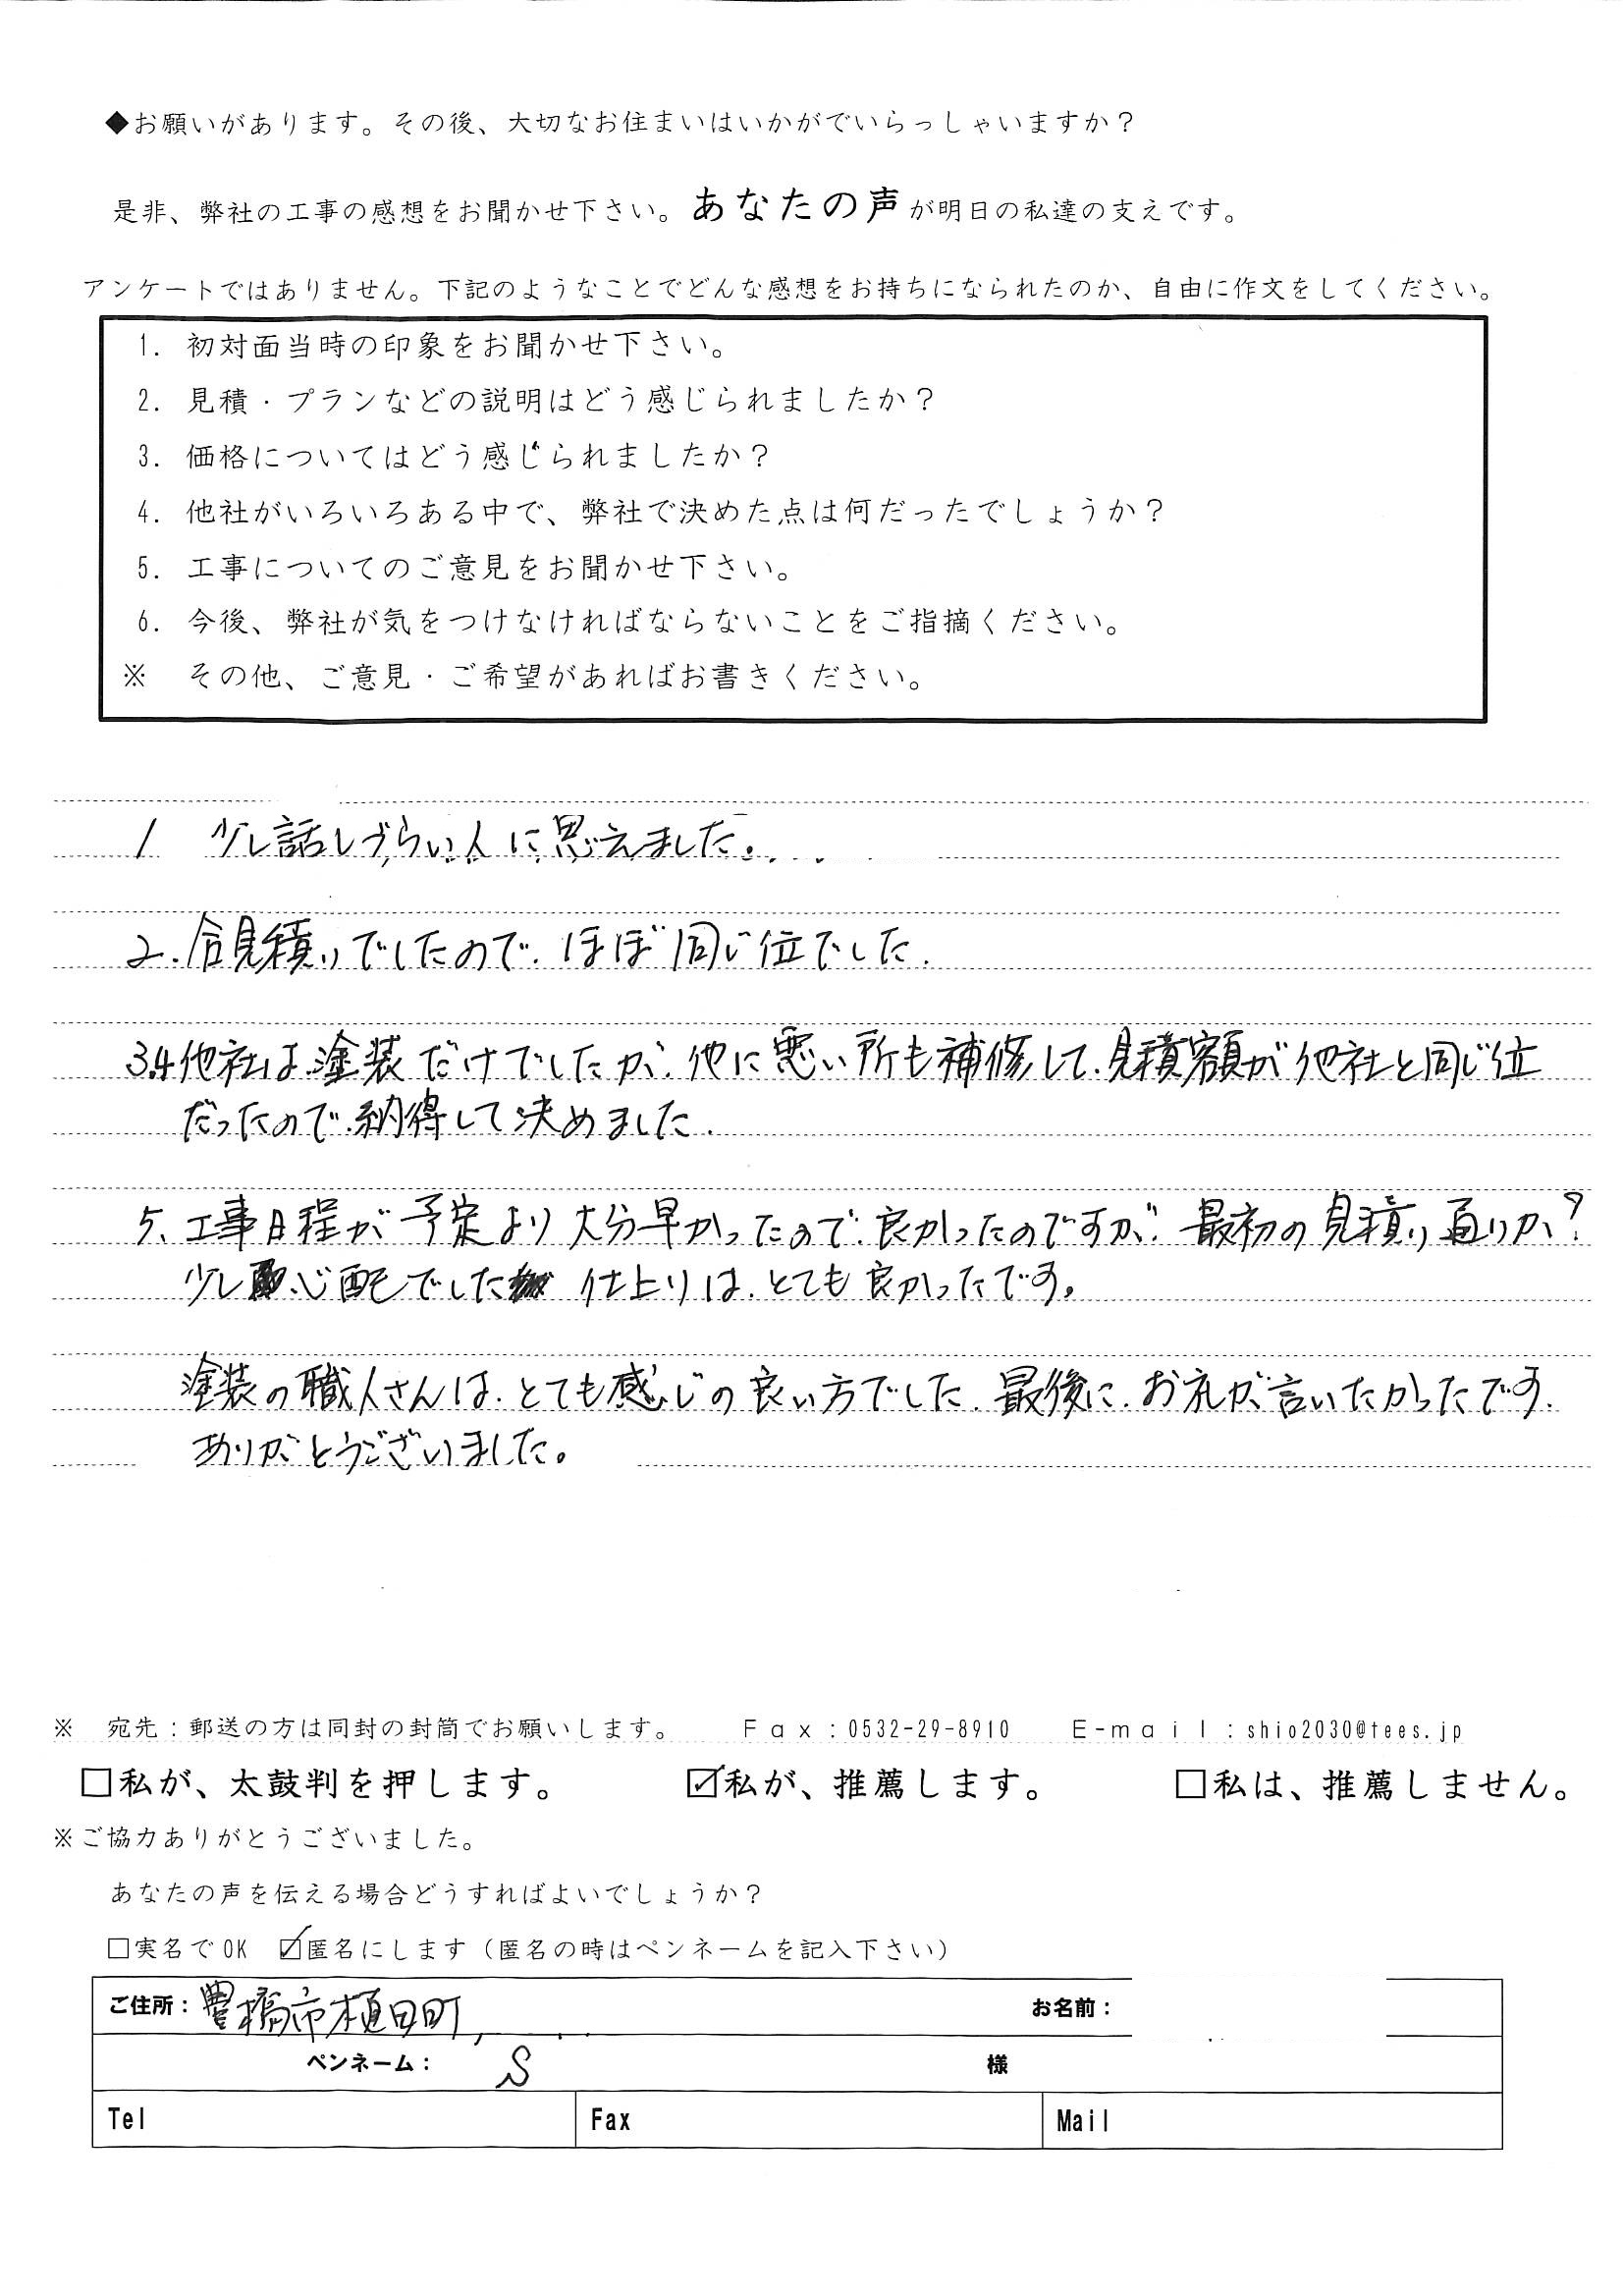 ◆お願いがあります。その後、大切なお住まいはいかがでいらっしゃいますか？
是非、弊社の工事の感想をお聞かせ下さい。あなたの声が明日の私達の支えです。
アンケートではありません。下記のようなことでどんな感想をお持ちになられたのか、自由に作文をしてください。
1. 初対面当時の印象をお聞かせ下さい。
2. 見積・プランなどの説明はどう感じられましたか？
3. 価格についてはどう感じられましたか？
4. 他社がいろいろある中で、弊社で決めた点は何だったでしょうか？
5. 工事についてのご意見をお聞かせ下さい。
6. 今後、弊社が気をつけなければならないことをご指摘ください。
※ その他、ご意見・ご希望があればお書きください。
1 少し話しづらい人に思えました。
2. 合見積りでしたので、ほぼ同じ位でした.
3.4 他社は塗装だけでしたが、他に悪い所も補修して、見積額が他社と同じ位
だったので、納得して決めました.
5、工事日程が予定より大分早かったので、良かったのですが、最初の見積り通りか？
少し心配でした 仕上りは、とても良かったです。
塗装の職人さんは、とても感じの良い方でした、最後に、お礼が言いたかったです.
ありがとうございました。
※ 宛先：郵送の方は同封の封筒でお願いします。 Ｆａｘ：0532-29-8910 Ｅ-ｍａｉｌ：shio2030@tees.jp
□私が、太鼓判を押します。 ☑私が、推薦します。 □私は、推薦しません。
※ご協力ありがとうございました。
あなたの声を伝える場合どうすればよいでしょうか？
□実名でOK ☑匿名にします（匿名の時はペンネームを記入下さい）
ご住所：豊橋市植田町 お名前：
ペンネーム： S 様
Tel Fax Mail